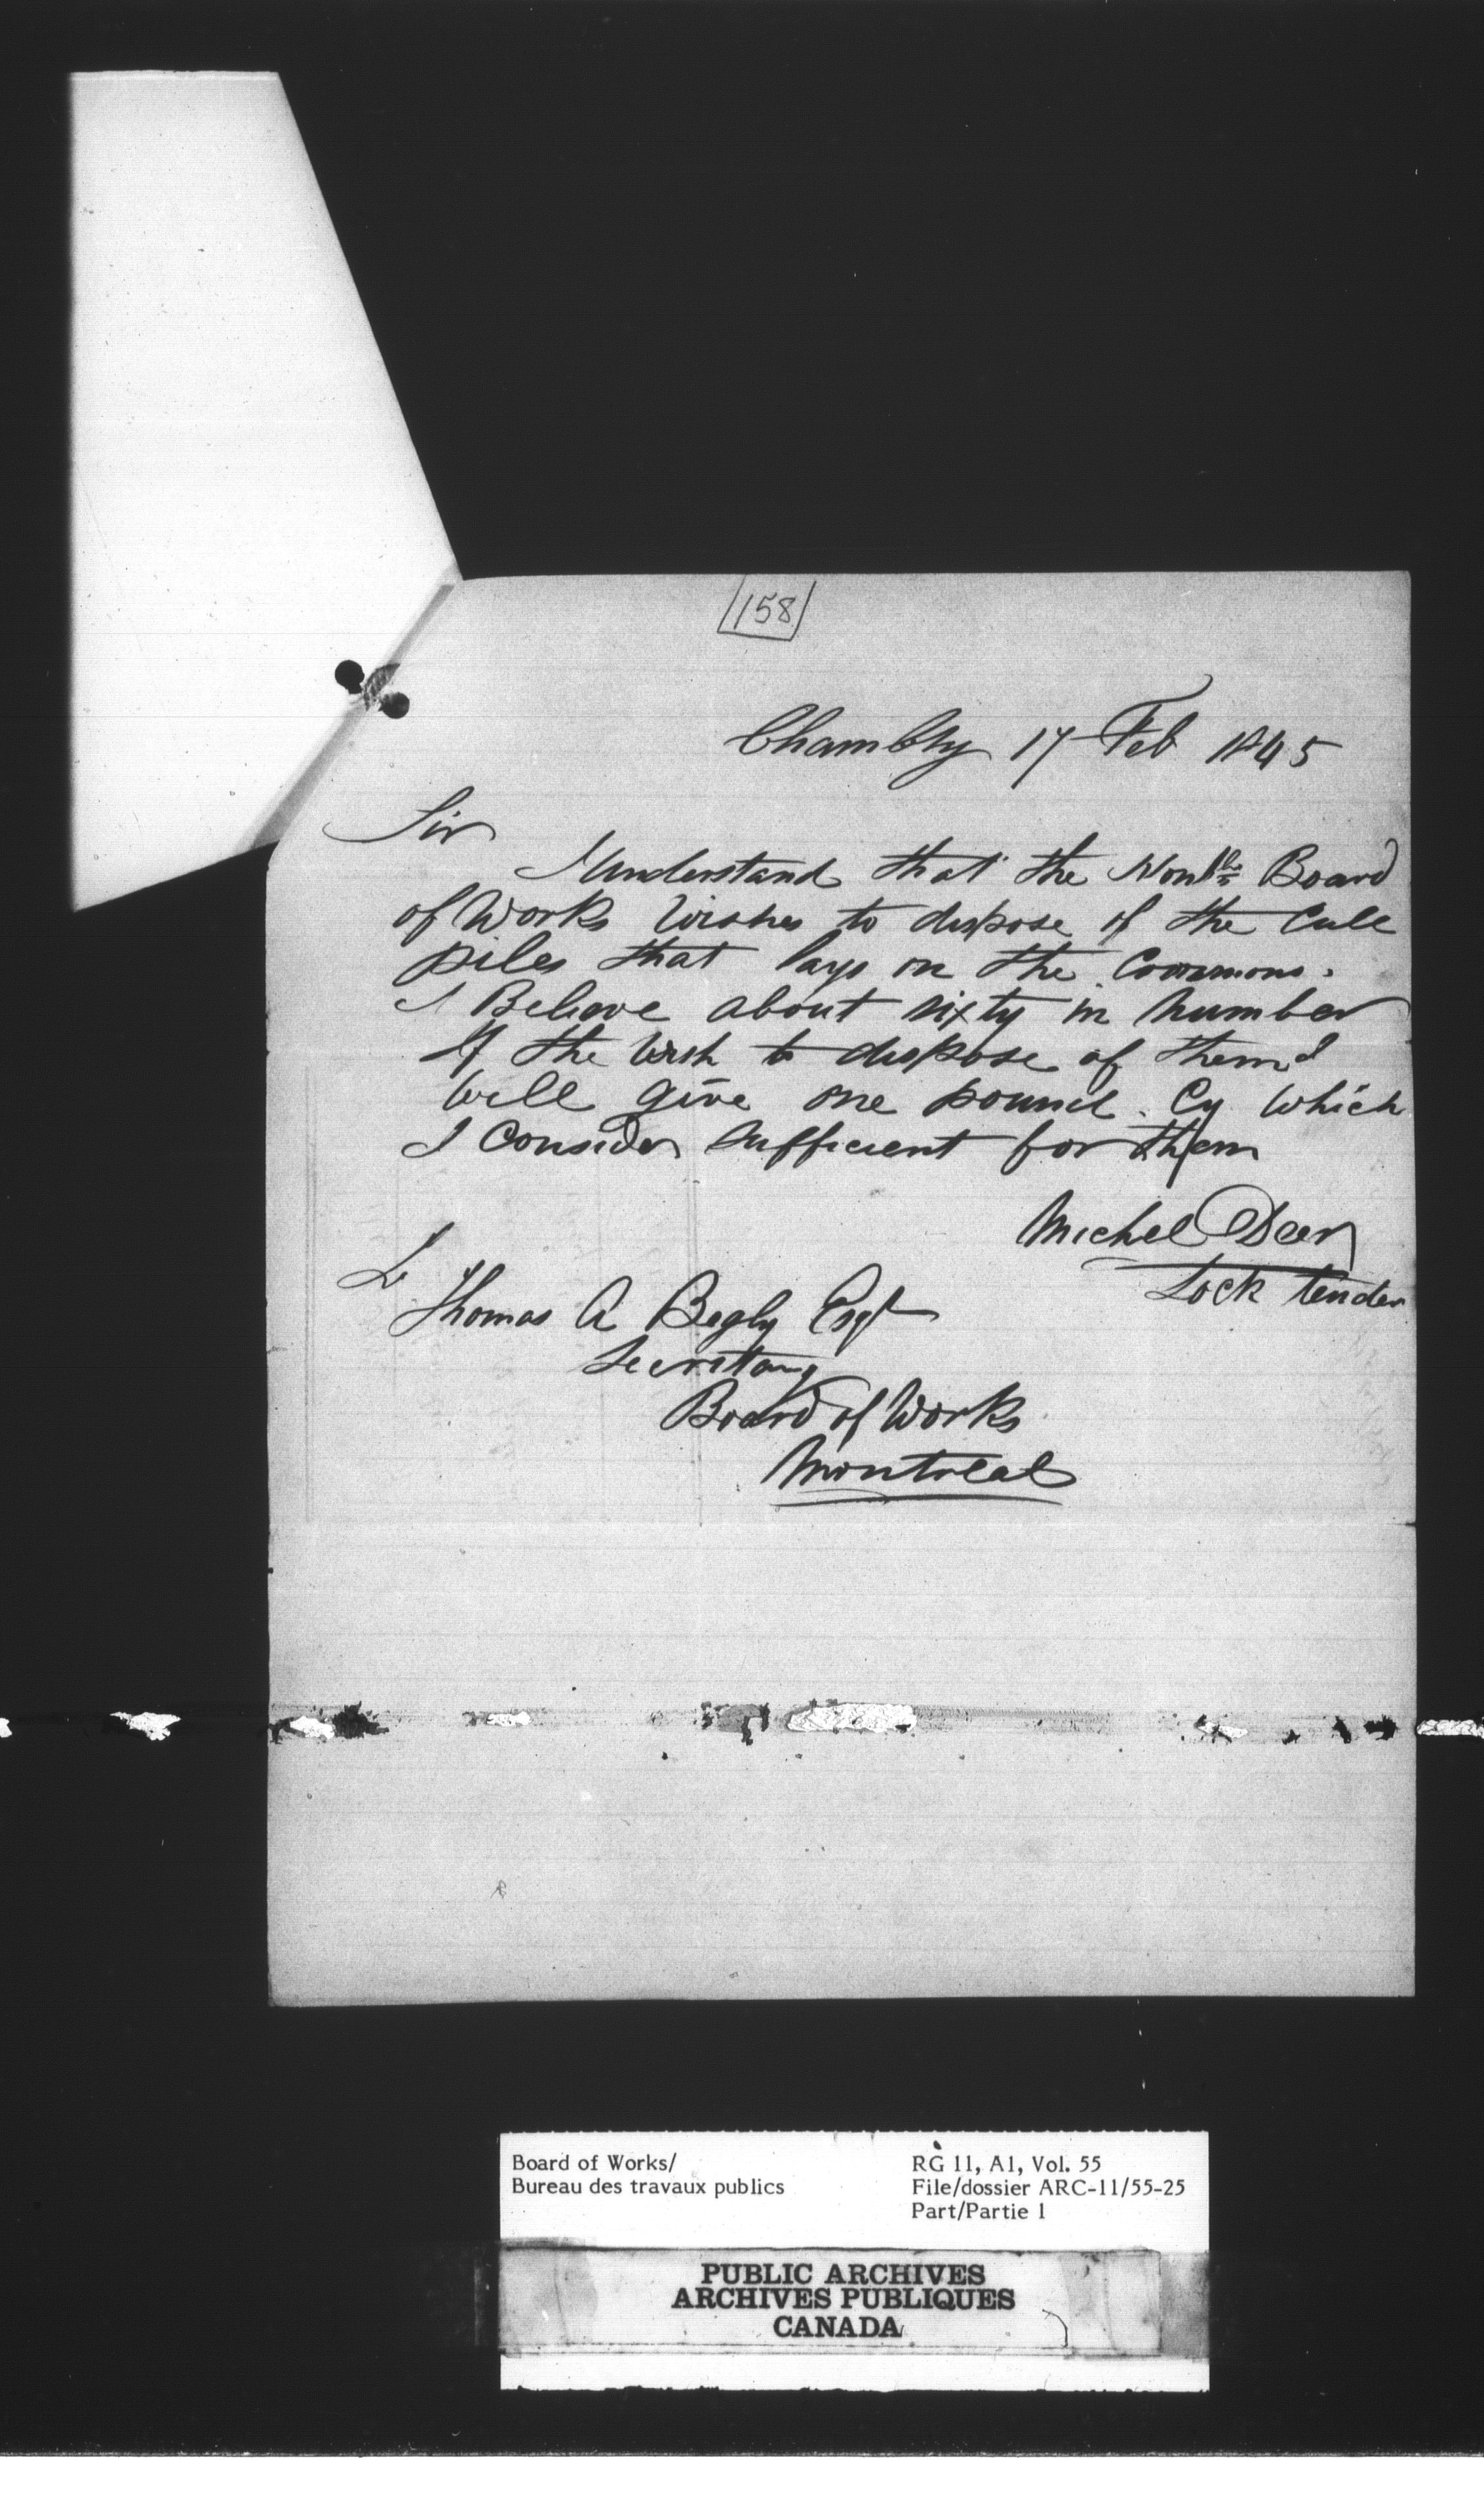 158
Chambly 17 Feb 1845
Sir
I understand that the Honble Board
of Works wishes to dispose of the Cull
piles that lays on the Commons.
I Believe about sixty in number
If the wish to dispose of them I
will give one pound Cy which
I Consider sufficient for them
Michel Deer
Lock tender
To
Thomas A Begly Esqr
Secretary
Board of Works
Montreal
Board of Works/
Bureau des travaux publics
RG 11, A1, Vol. 55
File/dossier ARC-11/55-25
Part/Partie 1
PUBLIC ARCHIVES
ARCHIVES PUBLIQUES
CANADA